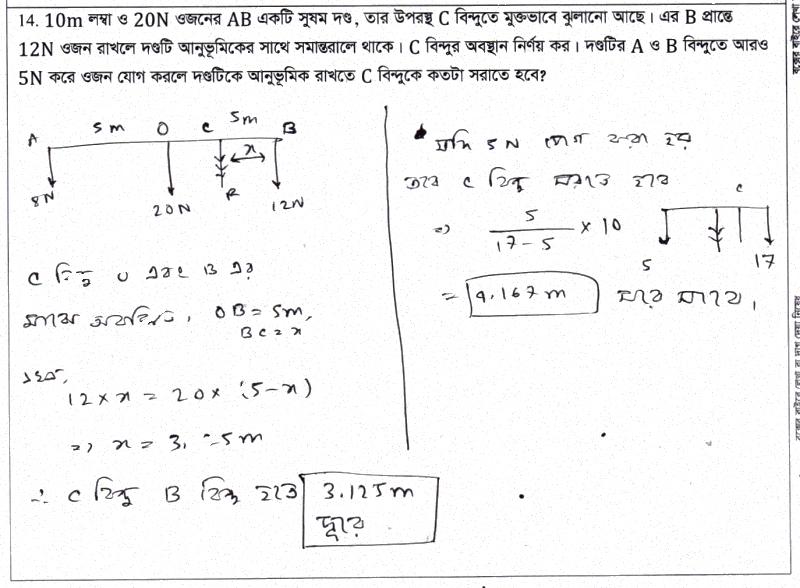 14. 10m লম্বা ও 20N ওজনের AB একটি সুষম দণ্ড, তার উপরস্থ C বিন্দুতে মুক্তভাবে ঝুলানো আছে। এর B প্রান্তে
12N ওজন রাখলে দণ্ডটি আনুভূমিকের সাথে সমান্তরালে থাকে। C বিন্দুর অবস্থান নির্ণয় কর। দণ্ডটির A ও B বিন্দুতে আরও
5N করে ওজন যোগ করলে দণ্ডটিকে আনুভূমিক রাখতে C বিন্দুকে কতটা সরাতে হবে?
A 5m O C 5m B
x
8N 20N R 12N
C বিন্দু O এবং B এর
মাঝে অবস্থিত, OB = 5m,
BC = x
12 × x = 20 × (5-x)
=> x = 3. 5m
∴ C বিন্দু B বিন্দু হতে 3.125m
দূরে
যদি 5N যোগ করা হয়
তবে C বিন্দু সরাতে হবে
=> 5/17-5 × 10
C
5 17
= 4.167m সরে যাবে।